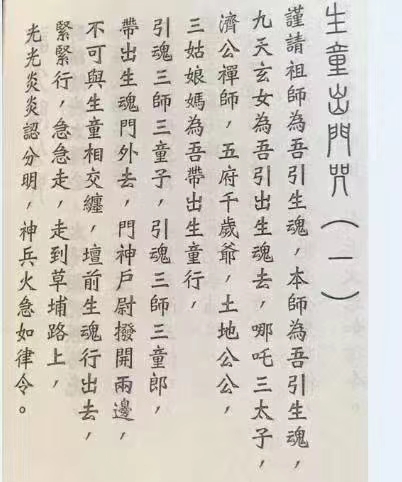 生童出門咒（一）
謹請祖師為吾引生魂，本師為吾引生魂，
九天玄女為吾引出生魂去，哪吒三太子，
濟公禪師，五府千歲爺，土地公公，
三姑娘媽為吾帶出生童行，
引魂三師三童子，引魂三師三童郎，
帶出生魂門外去，門神戶尉撥開兩邊，
不可與生童相交纏，壇前生魂行出去，
緊緊行，急急走，走到草埔路上，
光光炎炎認分明，神兵火急如律令。